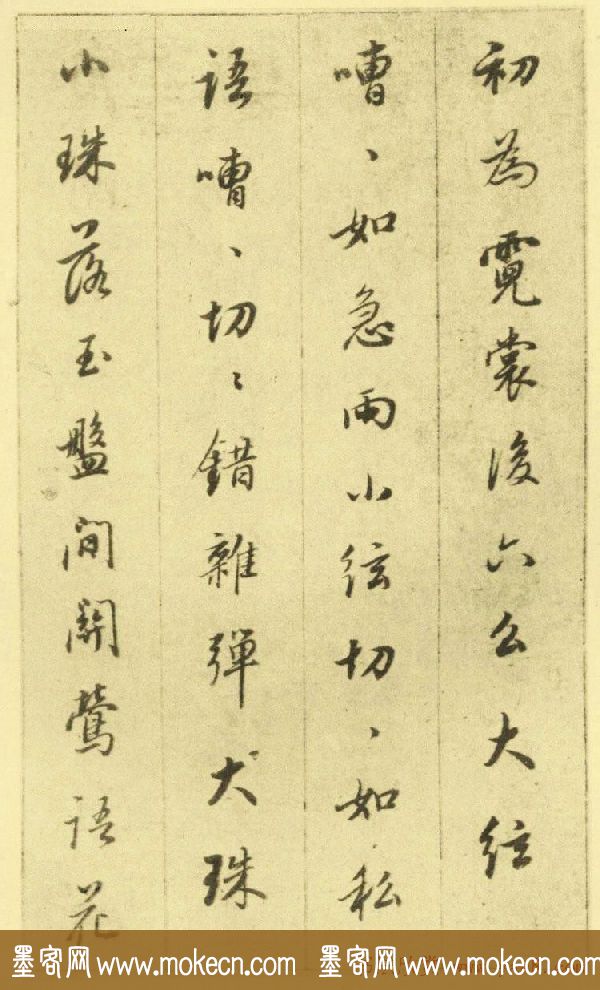 初為霓裳後六么大絃
嘈、如急雨小絃切、如私
語嘈、切、錯雜彈大珠
小珠落玉盤間關鶯語花
墨客网 www.mokecn.com 墨客网 www.mokecn.com